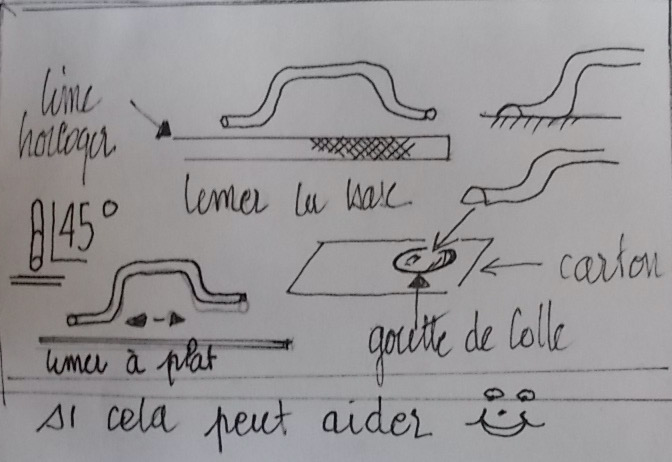 lime
horloger
limer la base
45°
carton
limer à plat
goutte de colle
si cela peut aider